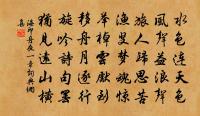 水色連天色
風聲益浪聲
旅人歸思苦
漁叟夢魂驚
舉棹雲先到
移舟月逐行
旋吟詩句罷
猶見遠山橫
海印舟夜一章詞典網